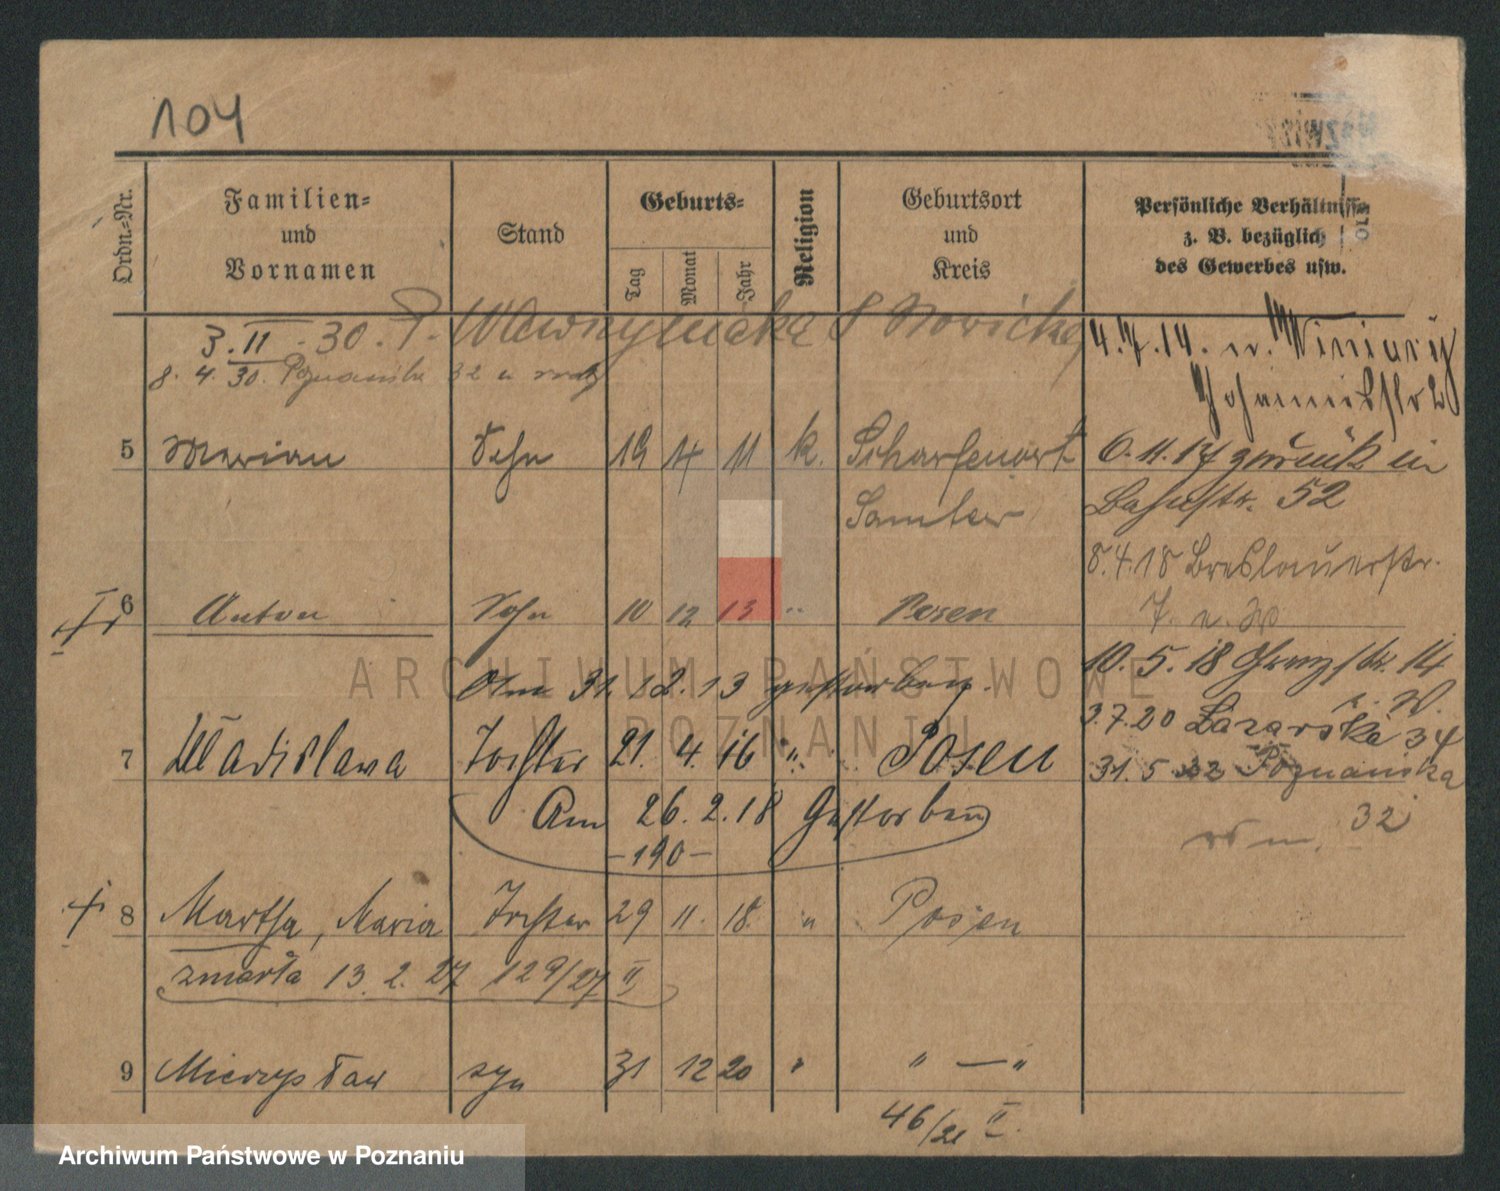 104
Ordn.-Nr.
Familien-
und
Vornamen
Stand
Geburts-
Tag
Monat
Jahr
Religion
Geburtsort
und
Kreis
Persönliche Verhältnisse
z. B. bezüglich
des Gewerbes usw.
3.II.30. P. Wawrzyniaka 8 Nowicka
8. 4. 30. Poznańska 32 u
4.7.14. n. Winiary
Johannisstr 2
5 Marian Sohn 19 4 11 k. Scharfenort
Samter
6.11.17 zurück in
Bahnstr. 52
8.4.18 Breslauerstr.
7. n. W
6 Anton Sohn 10 12 13 " Posen
10. 5. 18 14
n. W.
Am 31.12.13 gestorben.
3.7.20 Lazarska 34
7 Wladislawa Tochter 21. 4. 16 " Posen
31. 5 22 Poznańska
32
Am 26.2.18 Gestorben
-190-
8 Martha, Maria Tochter 29 11. 18. " Posen
zmarła 13.2.27 129/27 II
9 Mieczysław syn 31 12 20 " " — "
46/21 II.
ARCHIWUM PAŃSTWOWE
W POZNANIU
Archiwum Państwowe w Poznaniu